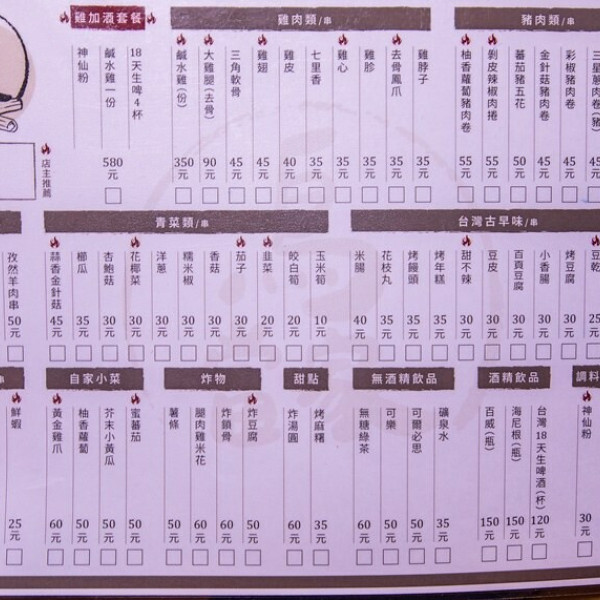 雞加酒套餐
18天生啤4杯
鹹水雞一份
神仙粉
580元
店主推薦
雞肉類/串
雞脖子 35元
去骨鳳爪 35元
雞胗 35元
雞心 35元
七里香 35元
雞皮 40元
雞翅 45元
三角軟骨 45元
大雞腿(去骨) 90元
鹹水雞(份) 350元
豬肉類/串
三星蔥肉卷(豬) 45元
彩椒豬肉卷 45元
金針菇豬肉卷 45元
蕃茄豬五花 50元
剝皮辣椒肉捲 55元
柚香蘿蔔豬肉卷 55元
孜然羊肉串 50元
青菜類/串
玉米筍 10元
皎白筍 20元
韭菜 20元
茄子 30元
香菇 30元
糯米椒 30元
洋蔥 30元
花椰菜 30元
杏鮑菇 30元
櫛瓜 35元
蒜香金針菇 45元
台灣古早味/串
豆乾 25元
烤豆腐 30元
小香腸 30元
百頁豆腐 30元
豆皮 30元
甜不辣 30元
烤年糕 35元
烤饅頭 35元
花枝丸 35元
米腸 40元
串
鮮蝦 25元
自家小菜
蜜蕃茄 50元
芥末小黃瓜 50元
柚香蘿蔔 50元
黃金雞爪 60元
炸物
炸豆腐 50元
炸鎖骨 60元
腿肉雞米花 60元
薯條 50元
甜點
烤麻糬 35元
炸湯圓 60元
無酒精飲品
礦泉水 35元
可爾必思 50元
可樂 50元
無糖綠茶 60元
酒精飲品
台灣18天生啤酒(杯) 120元
海尼根(瓶) 150元
百威(瓶) 150元
調料
神仙粉 30元